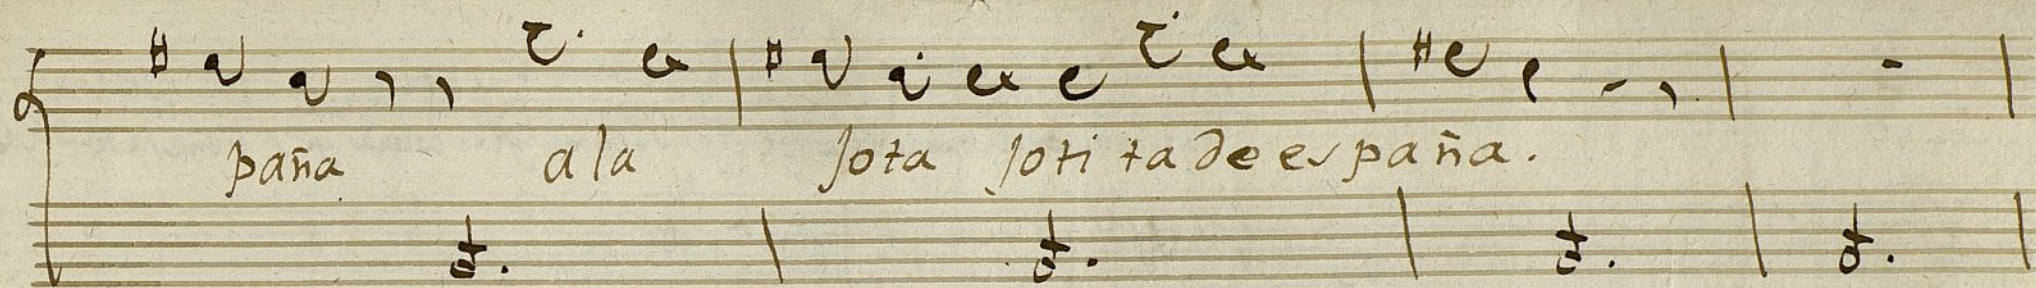 paña ala Jota Jotita de españa.